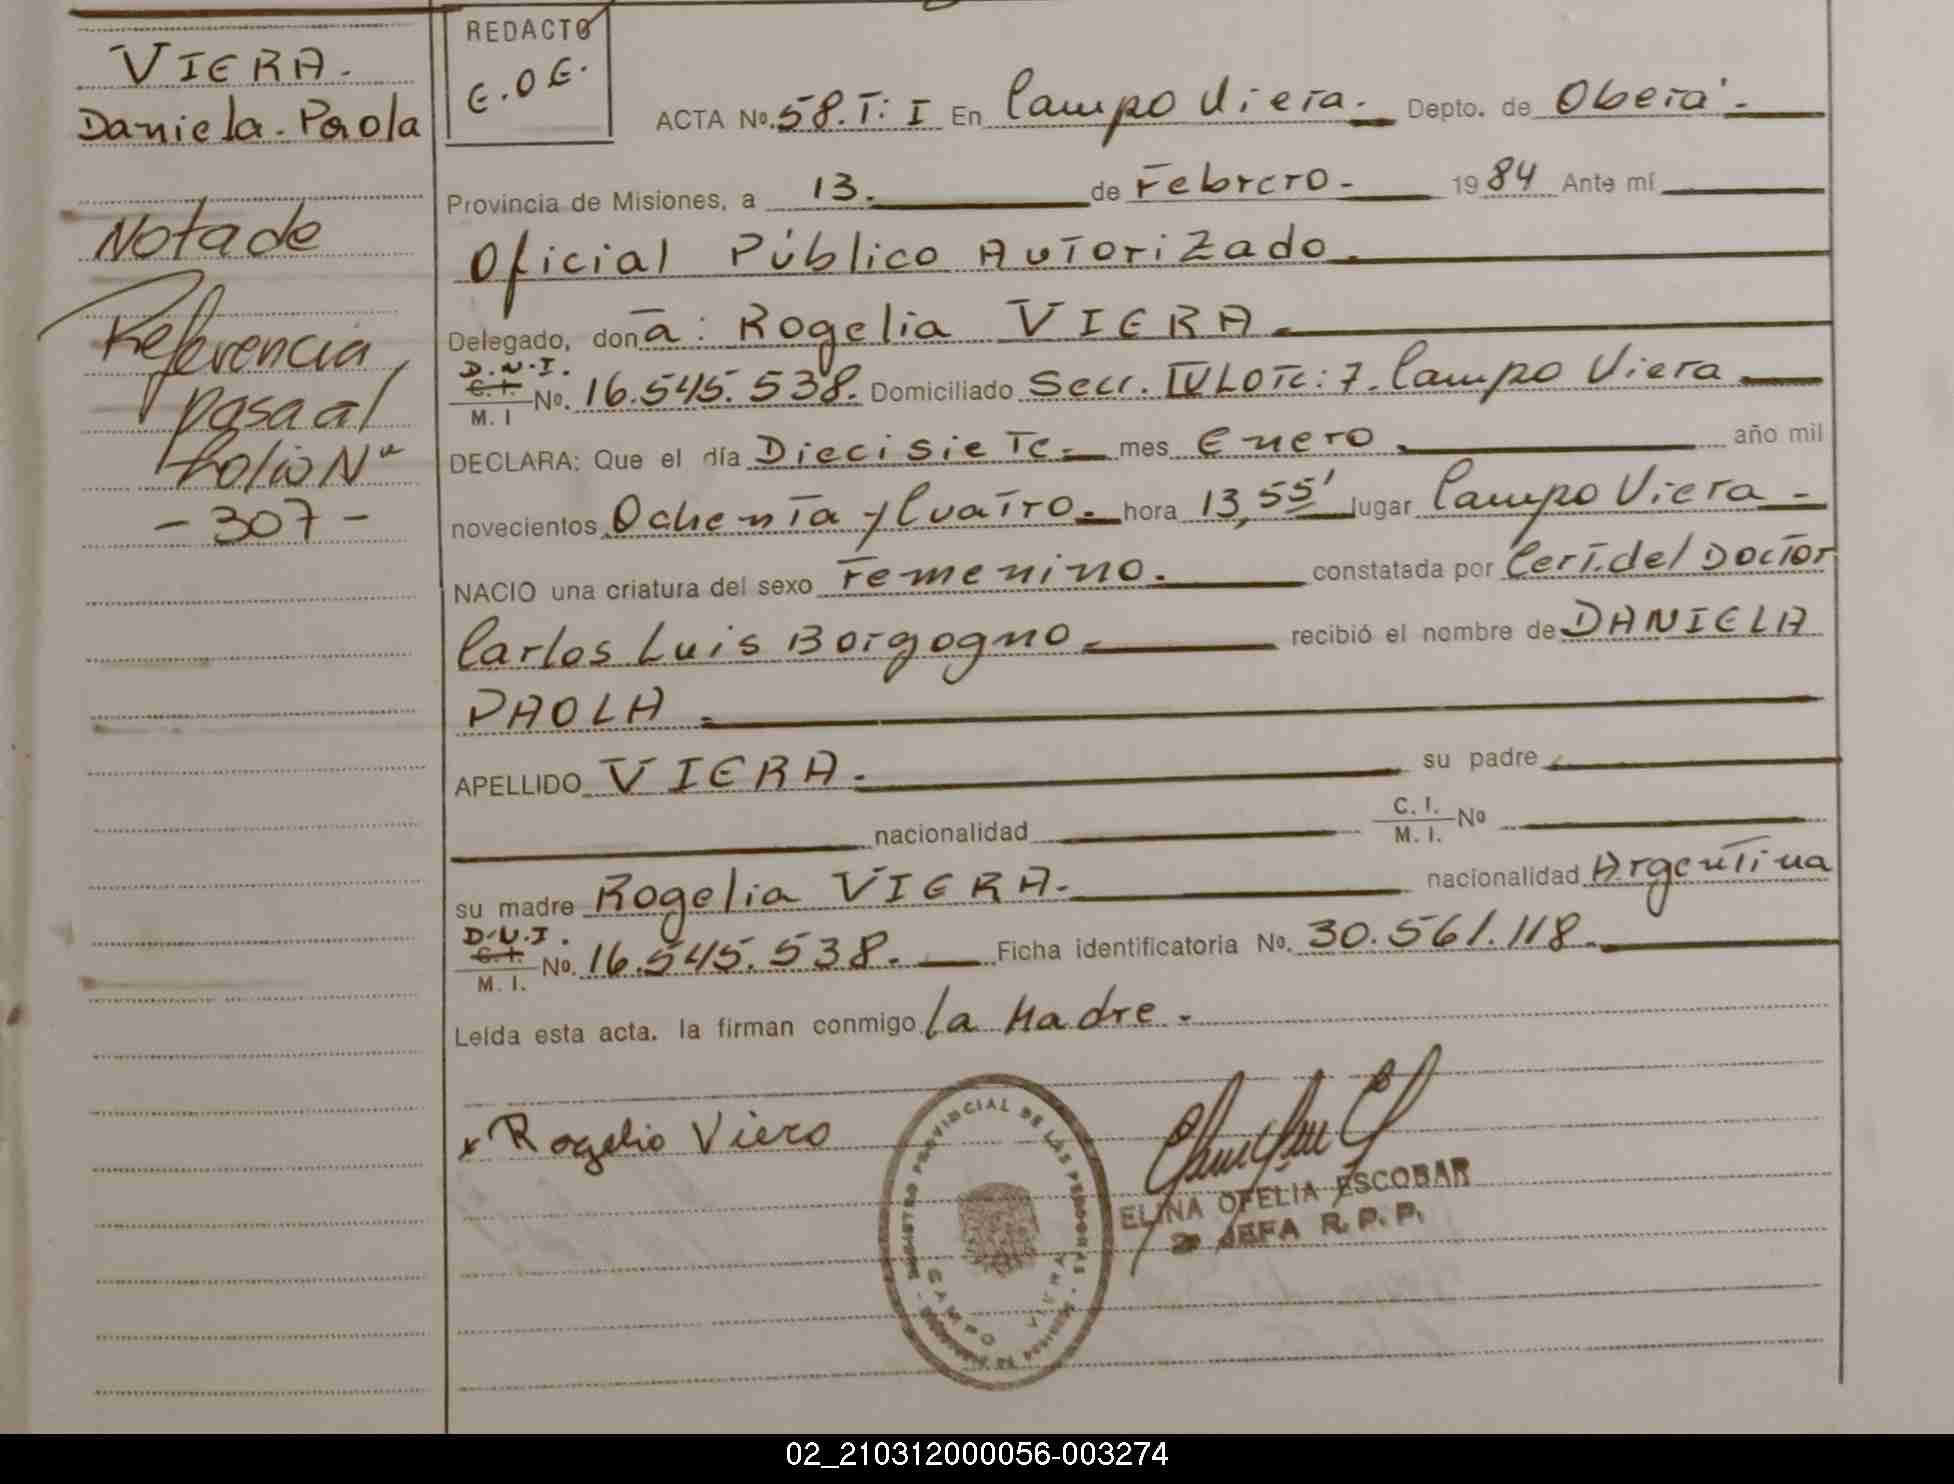 VIERA.
Daniela. Paola
Nota de
Referencia
pasa al
folio Nº
- 307 -
REDACTO
E.O.E.
ACTA No. 58. T: I En Campo Viera. Depto. de Oberá. -
Provincia de Misiones, a 13. de Febrero - 1984 Ante mí
Oficial Público Autorizado.
Delegado, don a: Rogelia VIERA.
D.N.I.
C.I.
M. I No. 16.545.538. Domiciliado Secc. IV LOTE: 7. Campo Viera
DECLARA: Que el día Diecisiete mes Enero. año mil
novecientos Ochenta y Cuatro. hora 13,55' lugar Campo Viera -
NACIO una criatura del sexo Femenino. constatada por Cert. del Doctor
Carlos Luis Borgogno. recibió el nombre de DANIELA
PAOLA
APELLIDO VIERA. su padre
nacionalidad C. I. M. I. No
su madre Rogelia VIERA. nacionalidad Argentina
D.N.I.
C.I.
M. I. No. 16.545.538. Ficha identificatoria No. 30.561.118.
Leída esta acta, la firman conmigo la Madre.
x Rogelia Viera
REGISTRO PROVINCIAL DE LAS PERSONAS
CAMPO VIERA
ELINA OFELIA ESCOBAR
JEFA R. P. P.
02_210312000056-003274